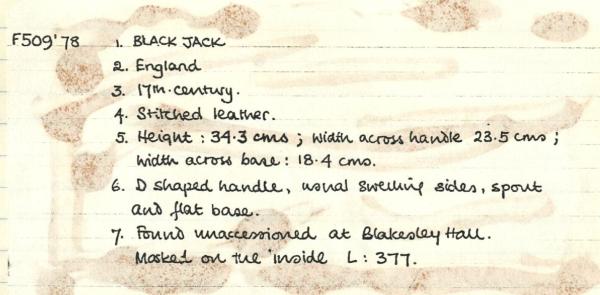 F509'78 1. BLACK JACK
2. England
3. 17th.century.
4. Stitched leather.
5. Height : 34.3 cms ; width across handle 23.5 cms ;
width across base : 18.4 cms.
6. D shaped handle, usual swelling sides, spout
and flat base.
7. Found unaccessioned at Blakesley Hall.
Masked on the inside L : 377.